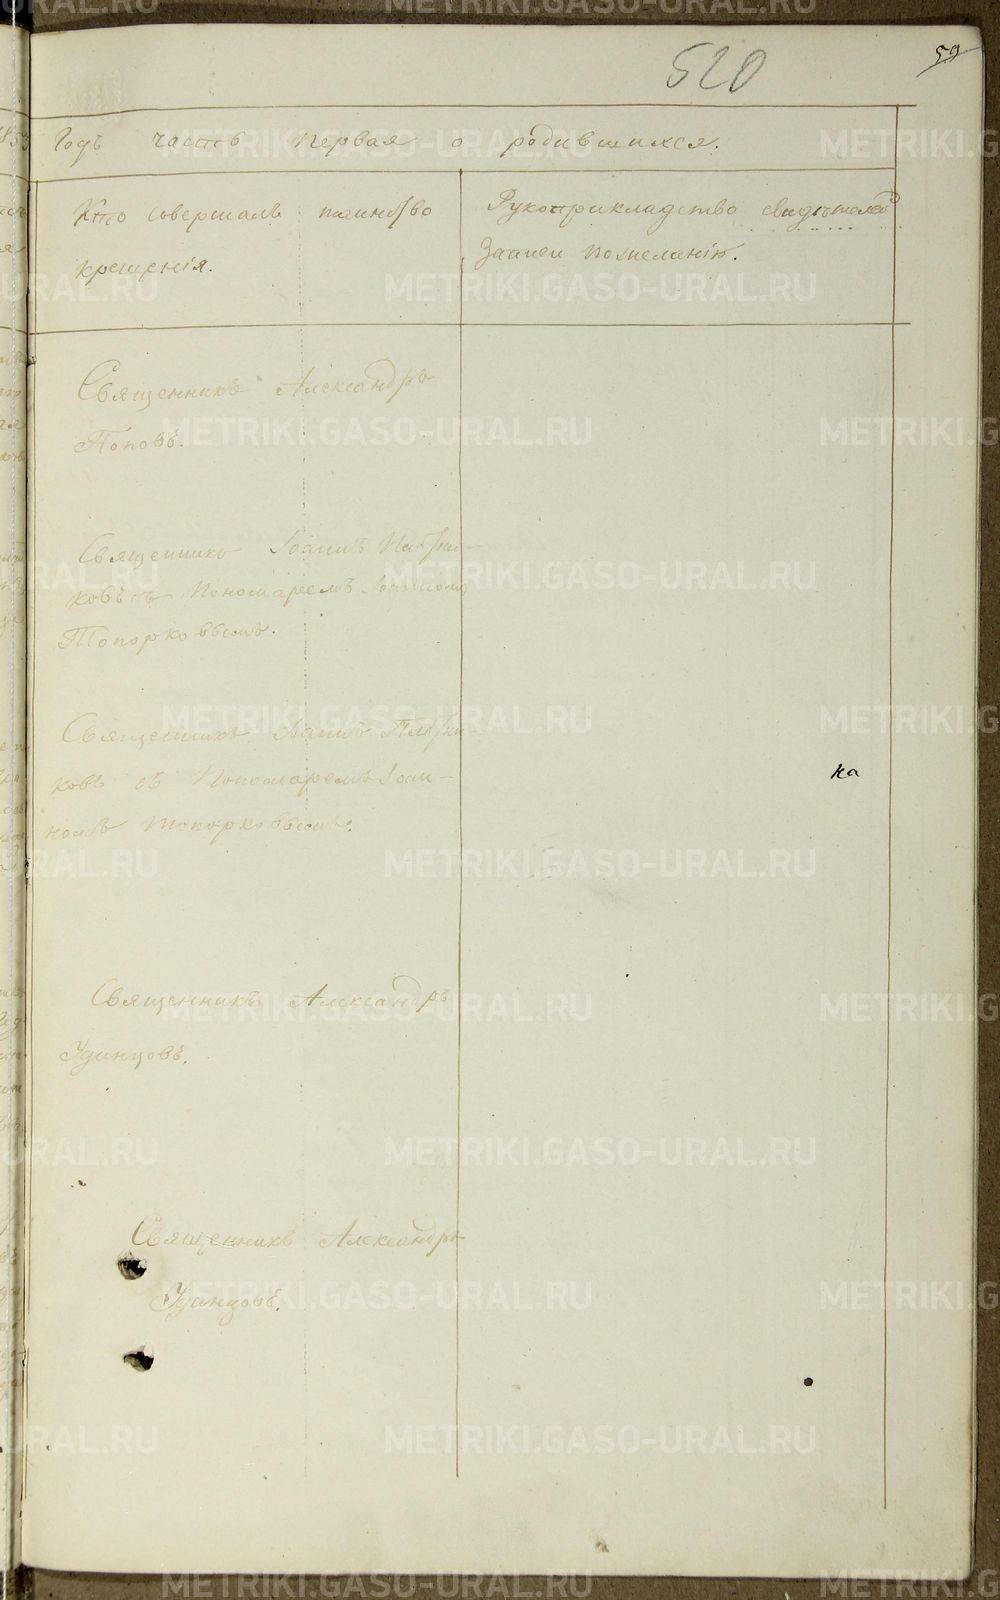 520
59
Годъ часть первая о родившихся.
Кто совершалъ таинство
крещенія.
Рукоприкладство свидѣтелей
записи по желанію.
Священникъ Александръ
Поповъ.
Священникъ Іоаннъ
ковъ съ Пономаремъ Іоанномъ
Топорковымъ.
Священникъ Іоаннъ
ковъ съ Пономаремъ Іоан-
номъ Топорковымъ.
на
Священникъ Александръ
Удинцовъ.
Священникъ Александръ
Удинцовъ.
METRIKI.GASO-URAL.RU